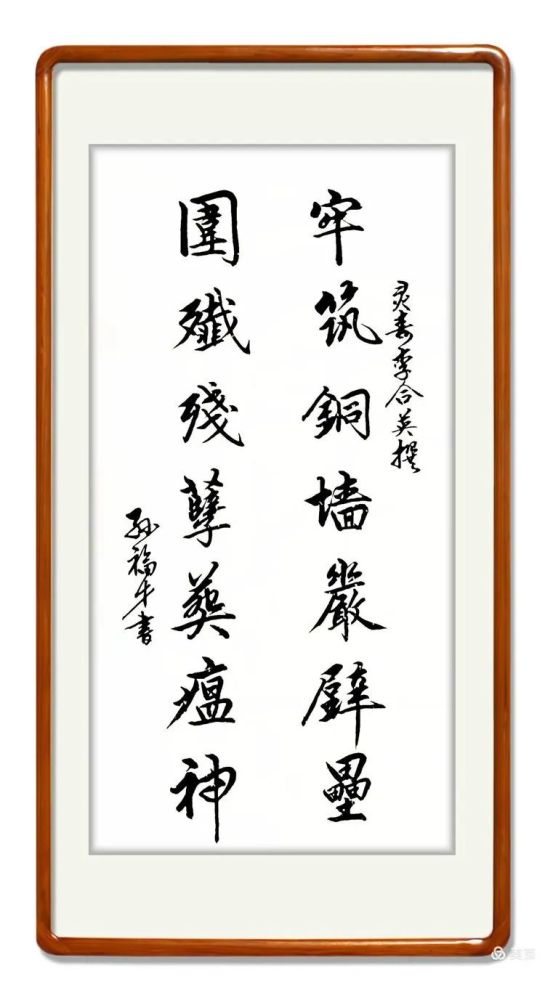 牢筑銅墙嚴壁壘
灵寿李合英撰
圍殲殘孽葬瘟神
孙福牛書
美篇